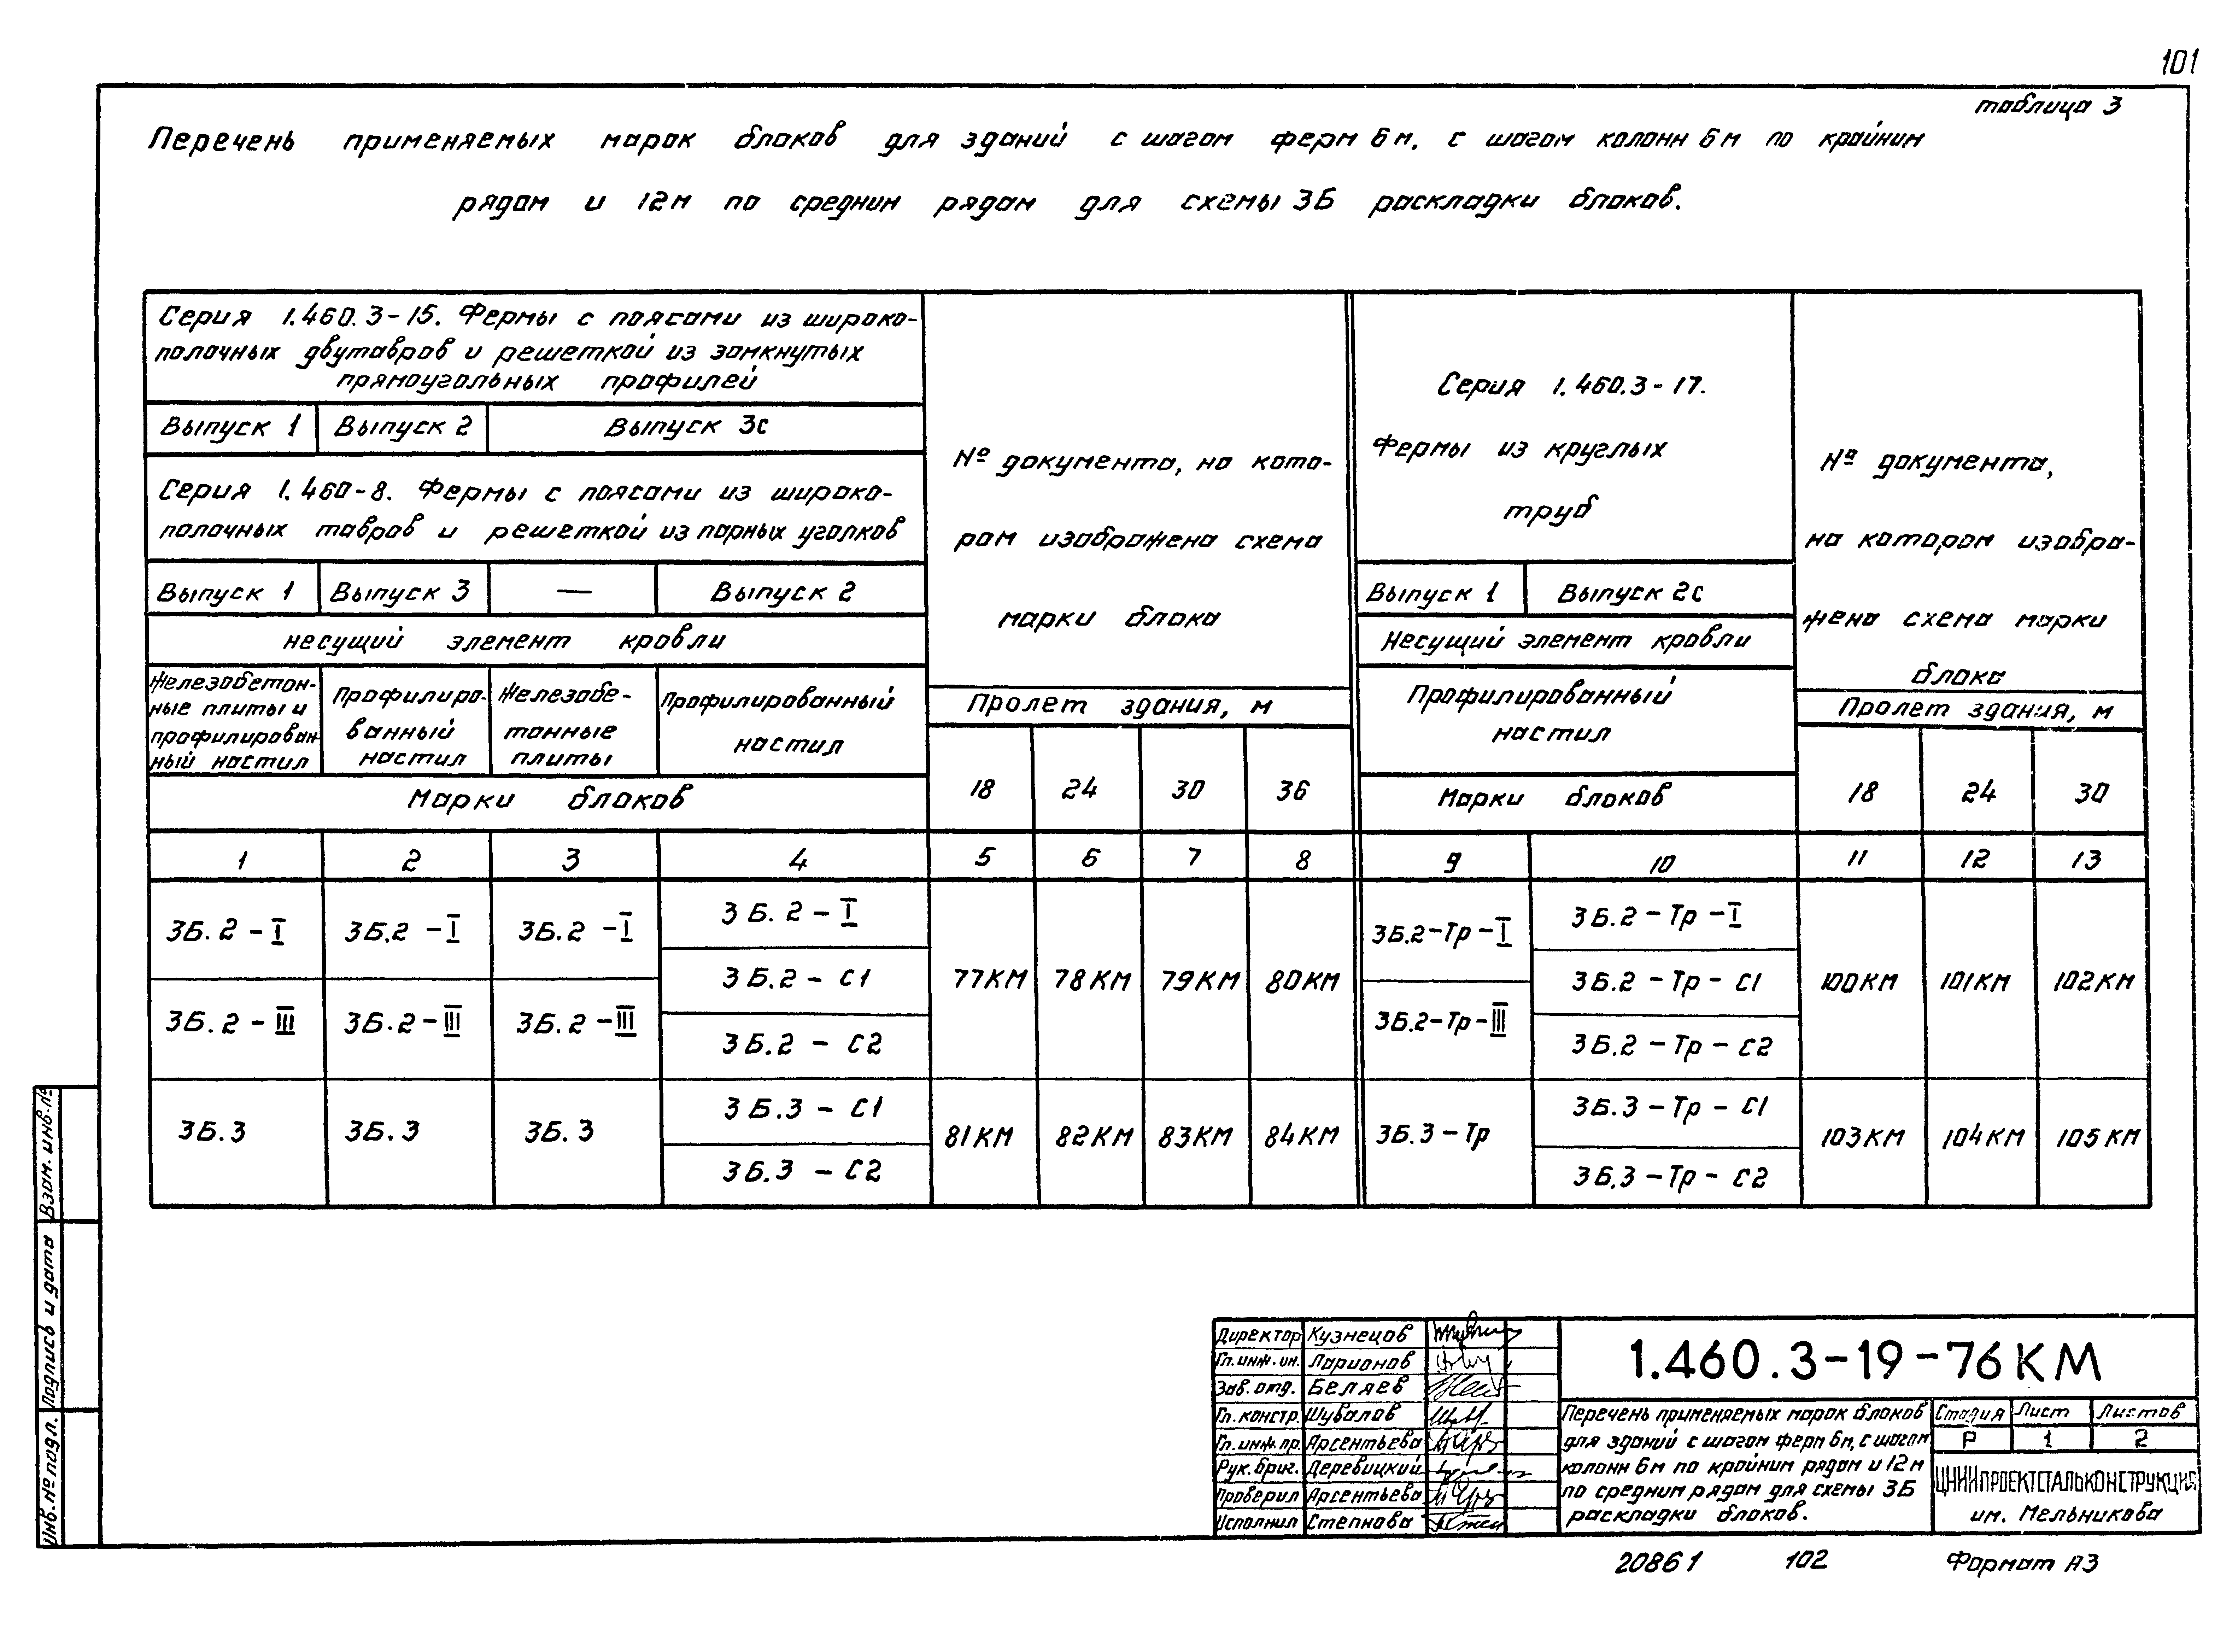 101
таблица 3
Перечень применяемых марок блоков для зданий с шагом ферм 6м, с шагом колонн 6м по крайним
рядам и 12м по средним рядам для схемы 3Б раскладки блоков.
Серия 1.460.3-15. Фермы с поясами из широко-
полочных двутавров и решеткой из замкнутых
прямоугольных профилей
Выпуск 1 Выпуск 2 Выпуск 3с
Серия 1.460-8. Фермы с поясами из широко-
полочных тавров и решеткой из парных уголков
Выпуск 1 Выпуск 3 — Выпуск 2
несущий элемент кровли
Железобетон-
ные плиты и
профилирован-
ный настил
Профилиро-
ванный
настил
Железобе-
тонные
плиты
Профилированный
настил
Марки блоков
№ документа, на кото-
ром изображена схема
марки блока
Пролет здания, м
18 24 30 36
Серия 1.460.3-17.
Фермы из круглых
труб
Выпуск 1 Выпуск 2с
Несущий элемент кровли
Профилированный
настил
Марки блоков
№ документа,
на котором изобра-
жена схема марки
блока
Пролет здания, м
18 24 30
1 2 3 4 5 6 7 8 9 10 11 12 13
3Б.2-I 3Б.2-I 3Б.2-I 3Б.2-I
3Б.2-С1
3Б.2-III 3Б.2-III 3Б.2-III
3Б.2-С2
77КМ 78КМ 79КМ 80КМ
3Б.2-Тр-I
3Б.2-Тр-III
3Б.2-Тр-I
3Б.2-Тр-С1
3Б.2-Тр-С2
100КМ 101КМ 102КМ
3Б.3 3Б.3 3Б.3
3Б.3-С1
3Б.3-С2
81КМ 82КМ 83КМ 84КМ
3Б.3-Тр
3Б.3-Тр-С1
3Б.3-Тр-С2
103КМ 104КМ 105КМ
Взам. инв.№
Подпись и дата
Инв.№ подл.
Директор Кузнецов
Гл. инж. ин. Ларионов
Зав. отд. Беляев
Гл. констр. Шувалов
Гл. инж. пр. Арсентьева
Рук. бриг. Деревицкий
Проверил Арсентьева
Исполнил Степнова
1.460.3-19-76КМ
Перечень применяемых марок блоков
для зданий с шагом ферм 6м, с шагом
колонн 6м по крайним рядам и 12м
по средним рядам для схемы 3Б
раскладки блоков.
Стадия Лист Листов
Р 1 2
ЦНИИПРОЕКТСТАЛЬКОНСТРУКЦИЯ
им. Мельникова
20861 102 Формат А3